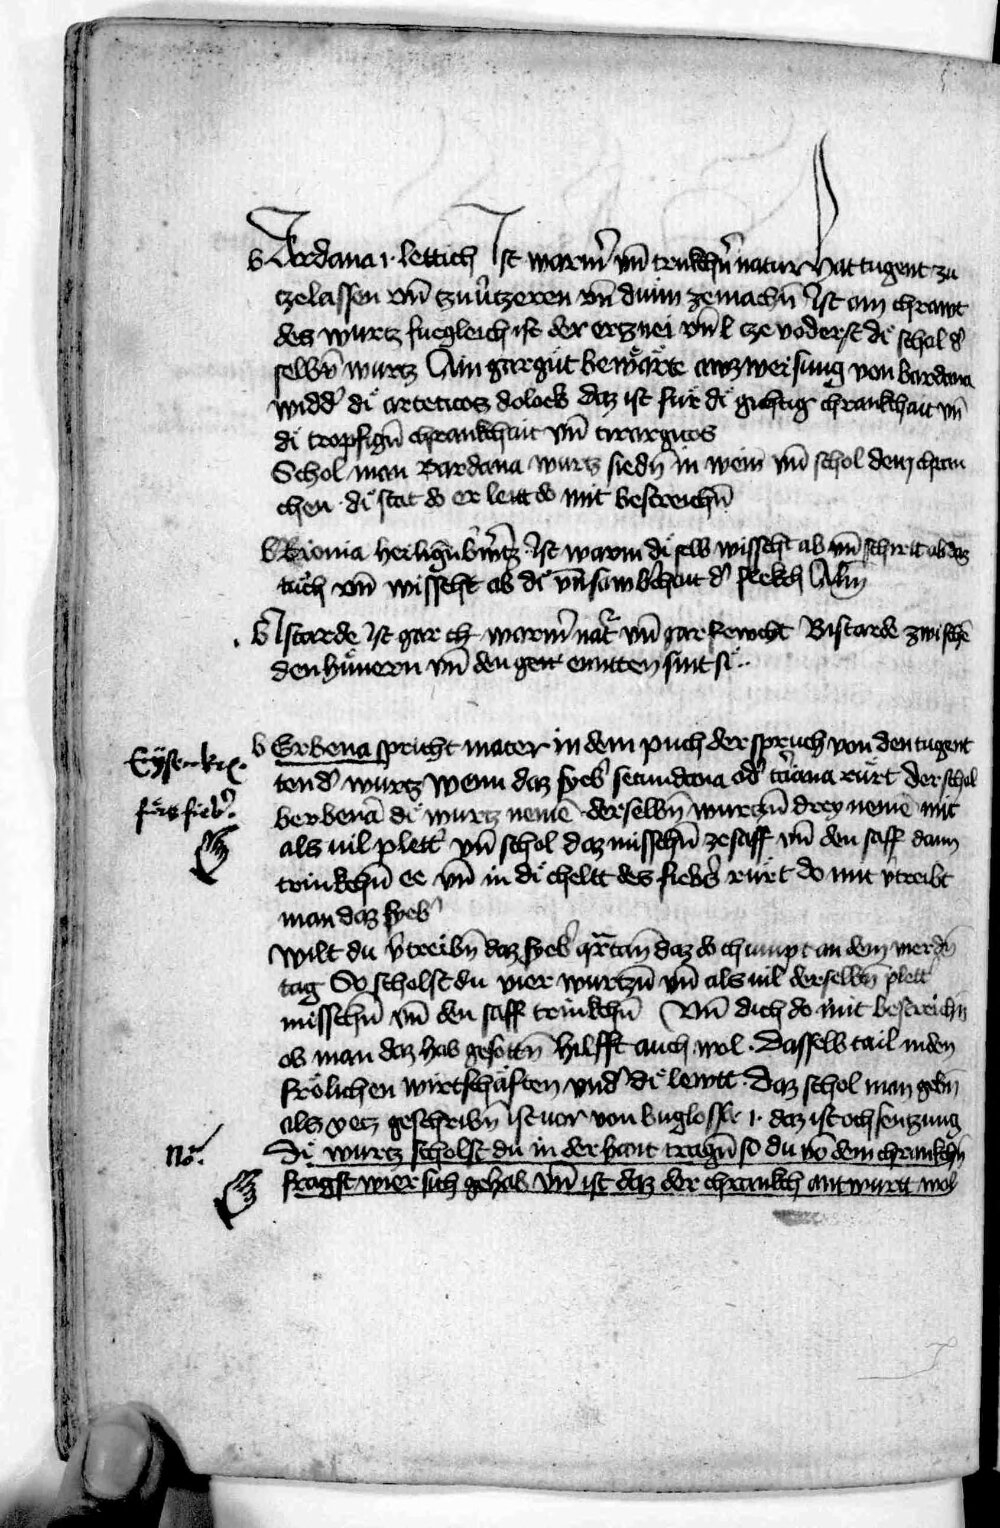 bArdana .i. lettich Ist warmˀ vn̄ trukchn̄ˀ natur Hat tugent zu
tzelassen vn̄ tzuv̂tzeren vn̄ dunn zemachn̄ Ist ain chrawt
des wurtz fuegleich ist der ertznei vn̄ l tze voderst di schol dˀ
selbn̄ wurtz Ain gar gůt bewärte awzweisung von bardana
widdˀ di arteticos doloes daz ist für di gichtig chrankchait vn̄
di tropfign̄ chrankchait vn̄ cirargicos
Schol man Bardana wurtz siedn̄ in wein vn̄ schol den chran
chen di stat do er leitt do mit bestreichn̄
bRionia heilign̄ bˀwrtz Ist warm di selb wisscht ab vn̄ schirit ab daz
tůch vn̄ wisscht ab di vn̄sawbˀchait dˀ flekch
bIstarde Ist gar warmˀ natˀ vn̄ gar fewcht Bistarde zwischē
den hünern vn̄ den gent enntten sint si
Eÿsnkr.
fürs fiebˀ.
bErbena spricht macer in dem puch der spruch von den tugent
tendˀ wurtz Wenn daz fyebˀ secundana odˀ tˀciana rürt der schol
berbenā di wurtz nemē derselbn̄ wurtzn̄ drey nemē mit
als uil plettˀ vn̄ schol daz misschn̄ ze saff vn̄ den saff dann
trinkchn̄ ee vn̄ in di cheltt des fiebˀs rürt do mit v̂treibt
man daz fyebˀ
Wilt du v̂treibn̄ daz fyebˀ qrtan̄ daz do chumpt an dem vierdn̄
tag So scholst du vier wurtzn̄ vn̄ als uil derselbn̄ plett
misschn̄ vn̄ den saff trinkchn̄ Vn̄ dich do mit bestreichn̄
ob man daz hab gesottn̄ Hilfft auch wol. Dasselb tail in den
frölichen wirtschäften vndˀ di lewtt. Daz schol man gebn̄
als yetz geschribn̄ ist uor von buglosse .i. daz ist ochsentzung
No.
Di wurtz scholst du in der hant tragn̄ so du vō dem chrankchn̄
fragst wier sich gehab vn̄ ist daz der chrankch antwurtt wol